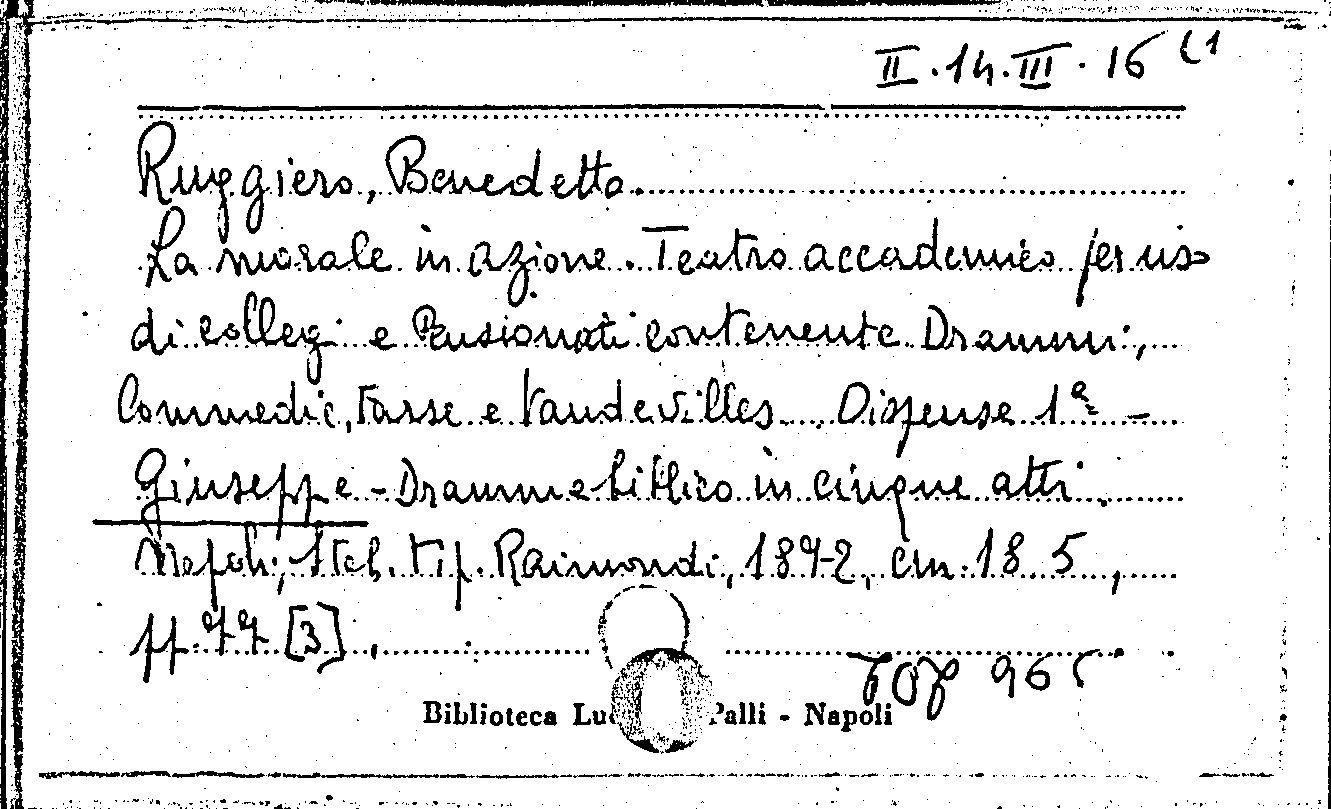 II.14.III.16 (1
Ruggiero, Benedetto.
La morale in azione. Teatro accademico per uso
di collegi e Pensionati contenente Drammi,
Commedie, Farse e Vaudevilles. Dispense 1ª -
Giuseppe - Dramma biblico in cinque atti.
Napoli, Stab. Tip. Raimondi, 1872, cm. 18 5,
pp. 77 [3],
96
Biblioteca Palli - Napoli